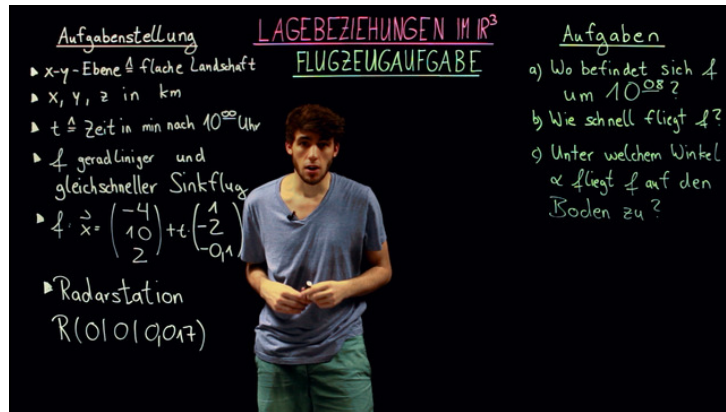 LAGEBEZIEHUNGEN IM ℝ³
FLUGZEUGAUFGABE
Aufgabenstellung
▸ x-y-Ebene ≙ flache Landschaft
▸ x, y, z in km
▸ t ≙ Zeit in min nach 10⁰⁰ Uhr
▸ f geradliniger und
gleichschneller Sinkflug
▸ f: x⃗ = (−4 10 2) + t · (1 −2 −0,1)
▸ Radarstation
R(0|0|0,017)
Aufgaben
a) Wo befindet sich f
um 10⁰⁸?
b) Wie schnell fliegt f?
c) Unter welchem Winkel
α fliegt f auf den
Boden zu?